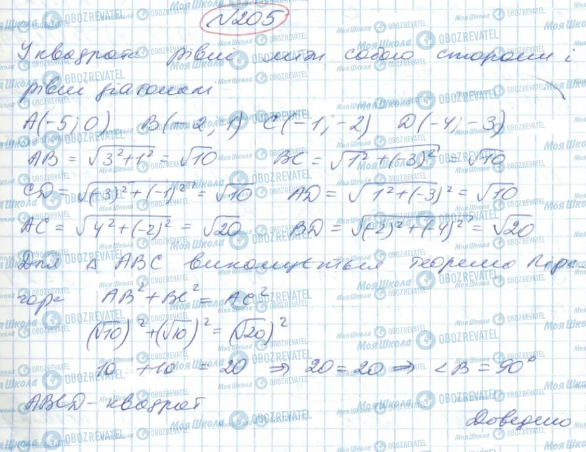 №205
У квадрата рівні між собою сторони і
рівні діагоналі
A(-5; 0) B(-2; 1) C(-1; -2) D(-4; -3)
AB = √3²+1² = √10 BC = √1²+(-3)² = √10
CD = √(-3)²+(-1)² = √10 AD = √1²+(-3)² = √10
AC = √4²+(-2)² = √20 BD = √(-2)²+(-4)² = √20
Для △ ABC виконується теорема Піфа-
гора AB² + BC² = AC²
(√10)² + (√10)² = (√20)²
10 + 10 = 20 ⇒ 20 = 20 ⇒ ∠B = 90°
ABCD - квадрат
Доведено